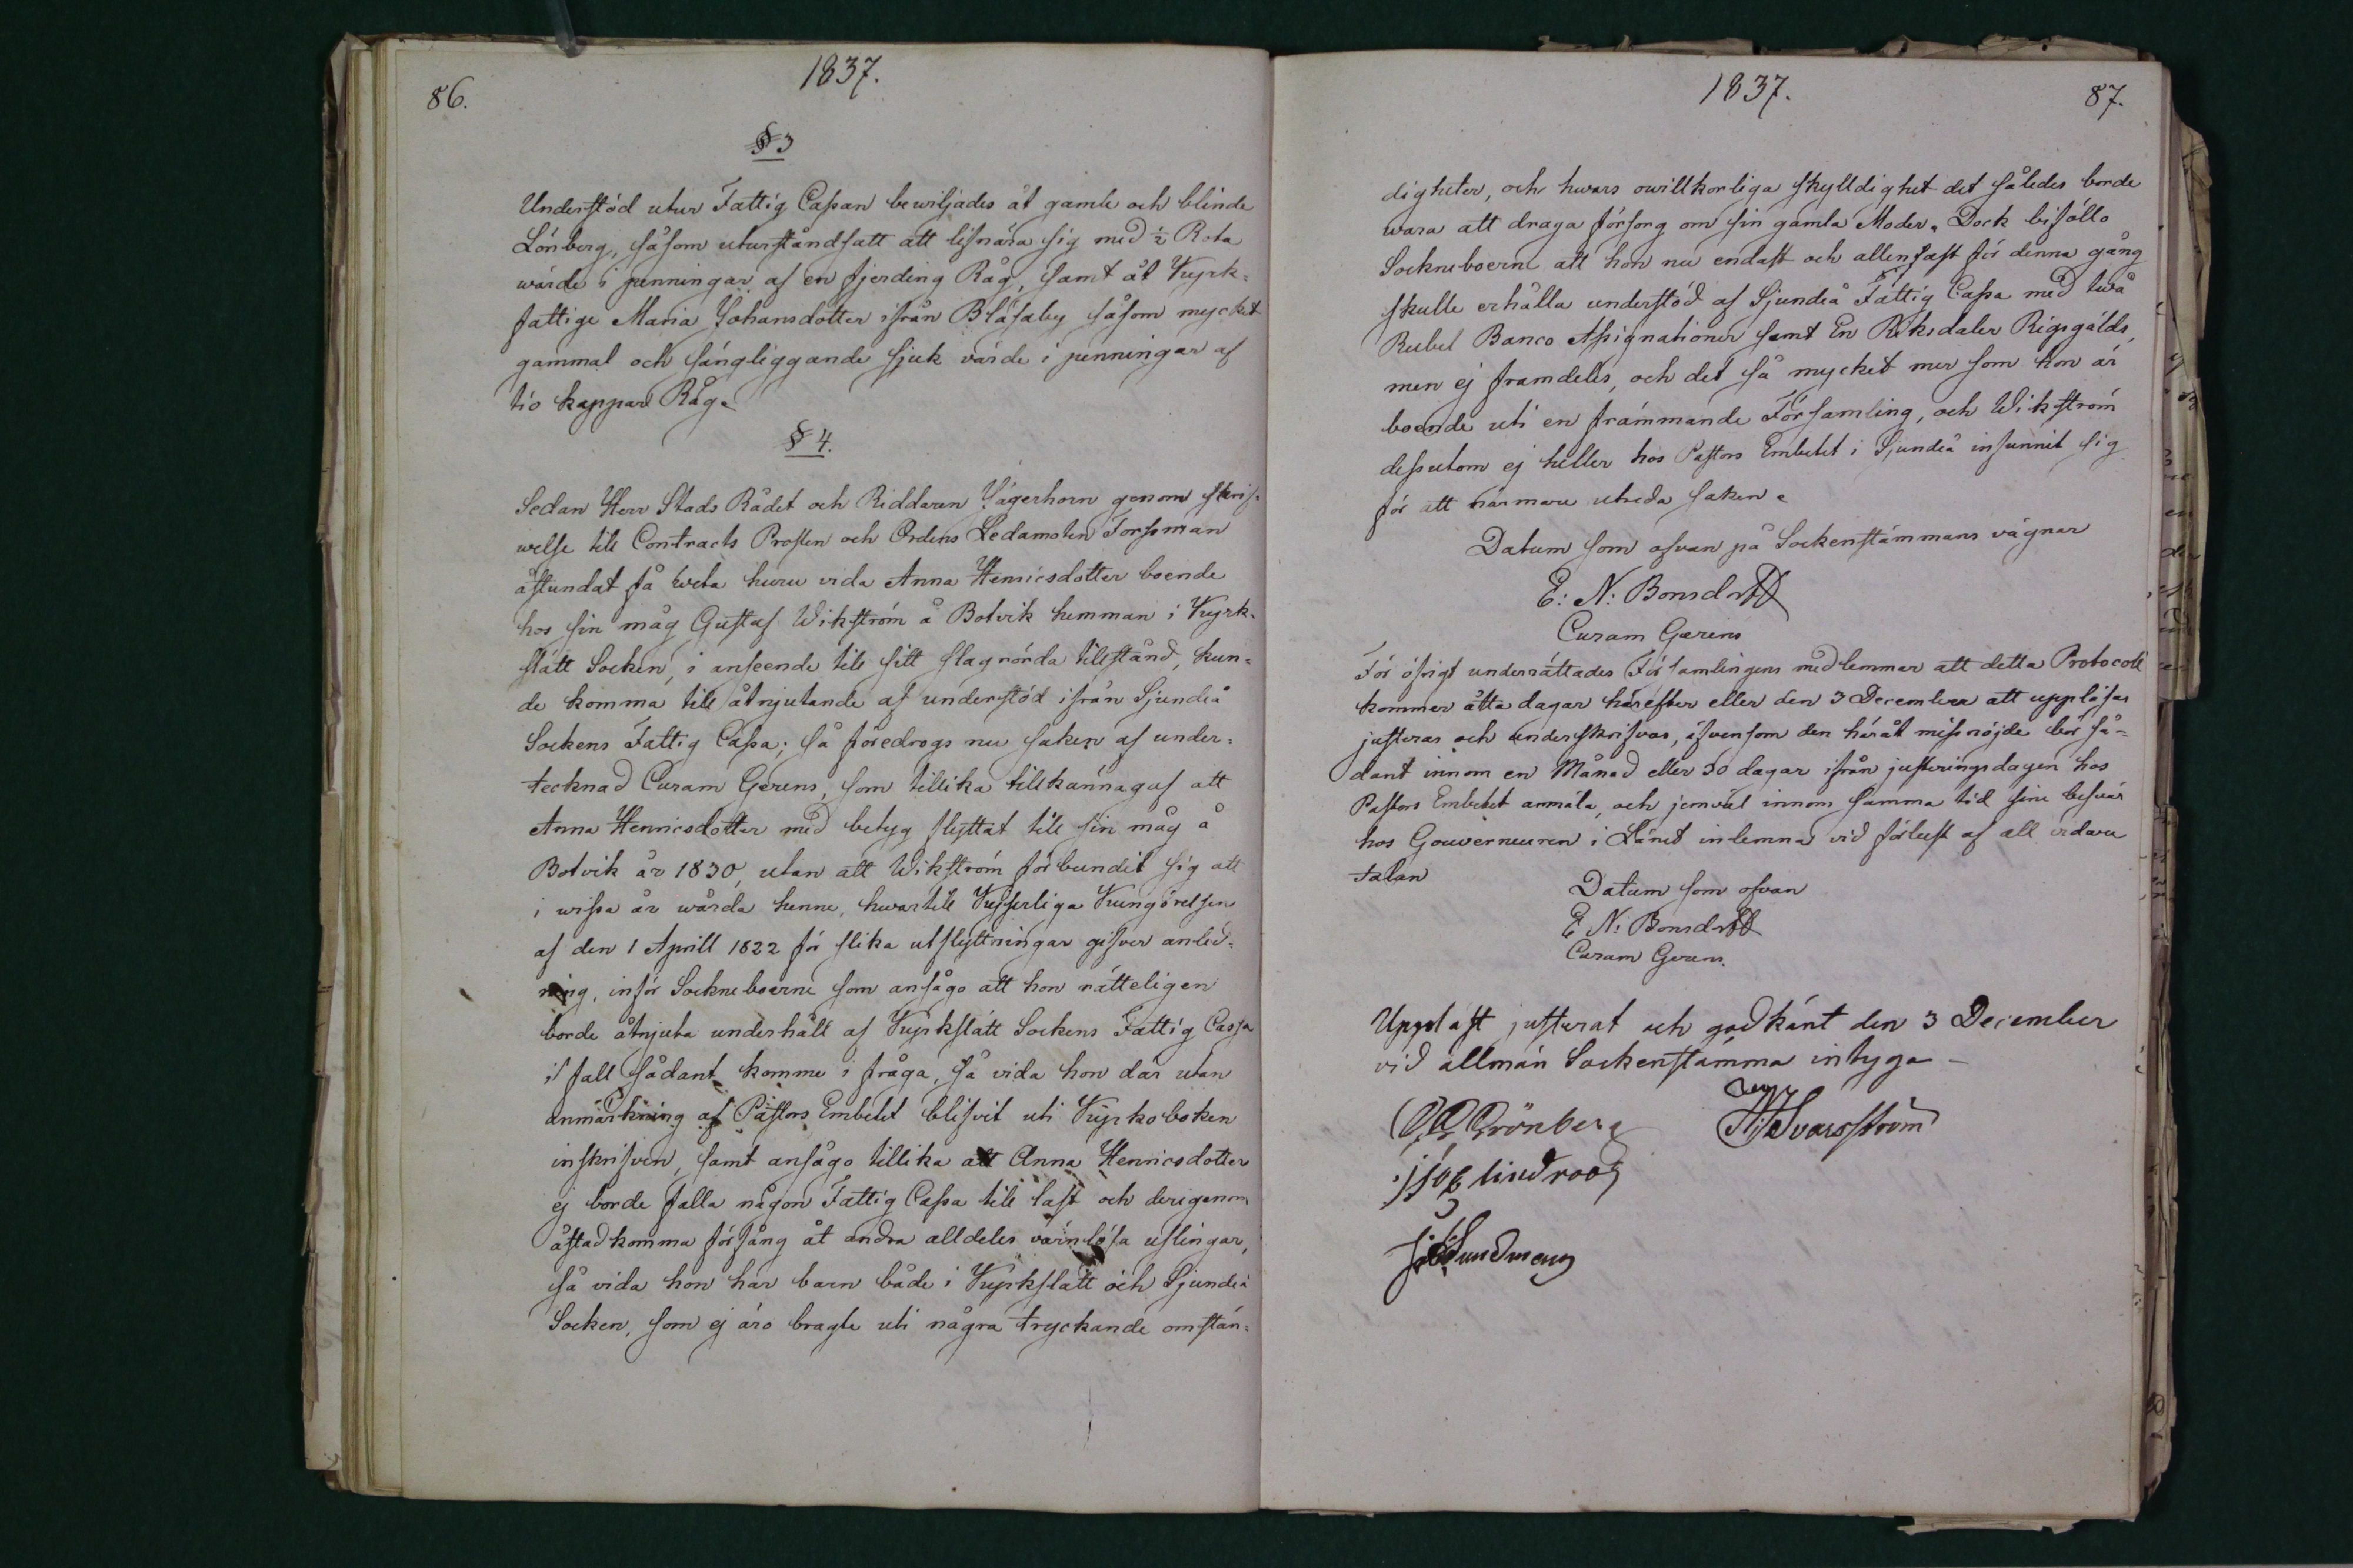 86.
1837.
§ 3
Understöd utur Fattig Cassan bewiljades åt gamle och blinde
Lönberg, såsom uturståndsatt att lifnära sig med ½ Rota
wärde i penningar af en fjerding Råg, samt åt Kyrk-
fattige Maria Johansdotter ifrån Blåsaby såsom mycket
gammal och sängliggande sjuk värde i penningar af
tio kappar Råg.
§ 4.
Sedan Herr Stads Rådet och Riddaren Jägerhorn genom skrif-
welse till Contracts Prosten och Ordens Ledamoten Forssman
åstundat få weta huru vida Anna Henricsdotter boende
hos sin måg Gustaf Wikström å Botvik hemman i Kyrk-
slätt Socken, i anseende till sitt slagrörda tillstånd, kun-
de komma till åtnjutande af understöd ifrån Sjundeå
Sockens Fattig Cassa; så föredrogs nu saken af under-
tecknad Curam Gerens, som tillika tillkännagaf att
Anna Henricsdotter med betyg flyttat till sin måg å
Botvik år 1830, utan att Wikström förbundit sig att
i wissa år wårda henne, hwartill Kejserliga Kungörelsen
af den 1 Aprill 1822 för slika utflyttningar gifver anled-
ning, inför Sockneboerne som ansågo att hon rätteligen
borde åtnjuta underhåll af Kyrkslätt Sockens Fattig Cassa
i fall sådant komme i fråga, så vida hon där utan
anmärkning af Pastors Embetet blifvit uti Kyrkoboken
inskrifven, samt ansågo tillika att Anna Henricsdotter
ej borde falla någon Fattig Cassa till last och derigenom
åstadkomma förfång åt andra alldeles värnlösa uslingar,
så vida hon har barn både i Kyrkslätt och Sjundeå
Socken, som ej äro bragte uti några tryckande omstän-
1837.
87.
digheter, och hwars owillkorliga skylldighet det således borde
wara att draga försorg om sin gamla Moder. Dock biföllo
Sockneboerne att hon nu endast och allenast för denna gång
skulle erhålla understöd af Sjundeå Fattig Cassa med två
Rubel Banco Assignationer samt En Riksdaler Riksgälds,
men ej framdeles, och det så mycket mer som hon är
boende uti en främmande Församling, och Wikström
dessutom ej heller hos Pastors Embetet i Sjundeå infunnit sig
för att närmare utreda saken.
Datum som ofvan på Sockenstämmans vägnar
E: N: Bonsdorff
Curam Gerens
För öfrigt underrättades Församlingens medlemmar att detta Protocoll
kommer åtta dagar härefter eller den 3 December att uppläsas
justeras och underskrifvas, äfvensom den häråt missnöjde bör så-
dant innom en Månad eller 30 dagar ifrån justeringsdagen hos
Pastors Embetet anmäla, och jemväl innom samma tid sine besvär
hos Gouverneuren i Länet inlemna vid förlust af all vidare
talan
Datum som ofvan
E N: Bonsdorff
Curam Gerens.
Uppläst justerat och godkänt den 3 December
vid allmän Sockenstämma intyga –
Grönberg
Svarsström
lindroos
Sundman